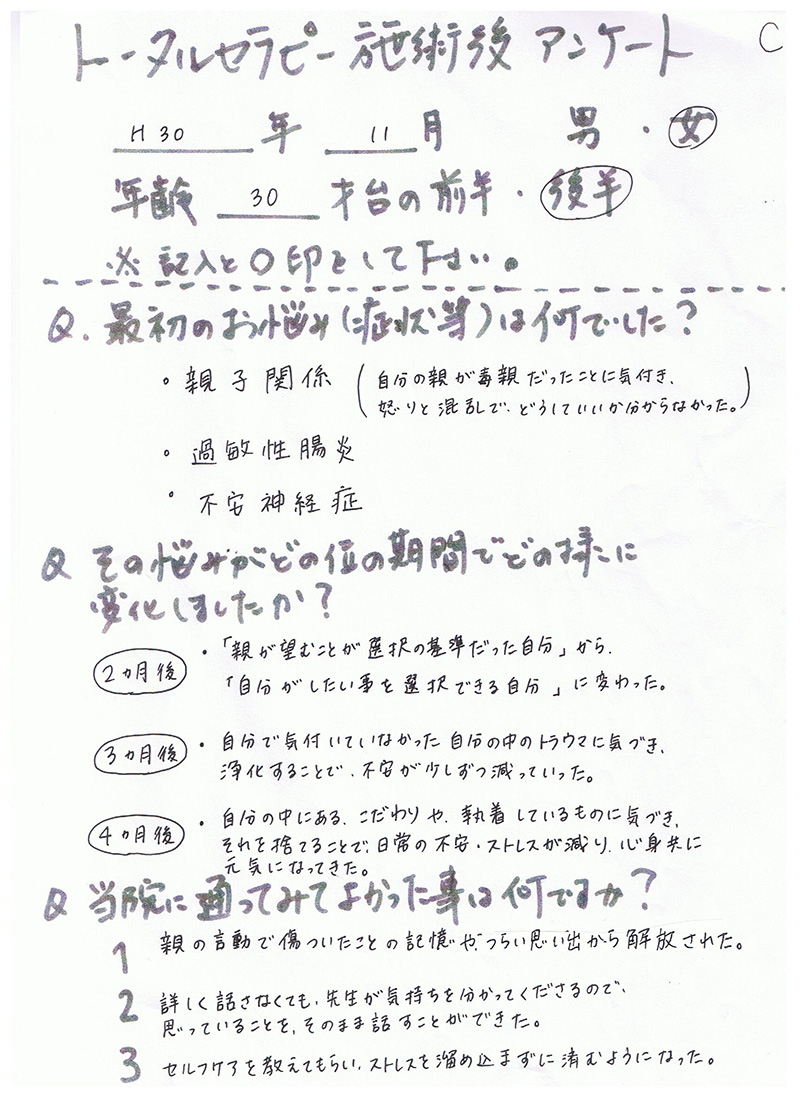 トータルセラピー施術後 アンケート C
H30 年 11 月 男・女
年齢 30 才台の前半・後半
※記入と○印をして下さい。
Q. 最初のお悩み(症状等)は何でした?
・親子関係 (自分の親が毒親だったことに気付き、
怒りと混乱で、どうしていいか分からなかった。)
・過敏性腸炎
・不安神経症
Q その悩みがどの位の期間でどの様に
変化しましたか?
2ヵ月後 ・「親が望むことが選択の基準だった自分」から、
「自分がしたい事を選択できる自分」に変わった。
3ヵ月後 ・自分で気付いていなかった自分の中のトラウマに気づき、
浄化することで、不安が少しずつ減っていった。
4ヵ月後 ・自分の中にある、こだわりや、執着しているものに気づき、
それを捨てることで、日常の不安・ストレスが減り、心身共に
元気になってきた。
Q 当院に通ってみてよかった事は何ですか?
1 親の言動で傷ついたことの記憶や、つらい思い出から解放された。
2 詳しく話さなくても、先生が気持ちを分かってくださるので、
思っていることを、そのまま話すことができた。
3 セルフケアを教えてもらい、ストレスを溜め込まずに済むようになった。